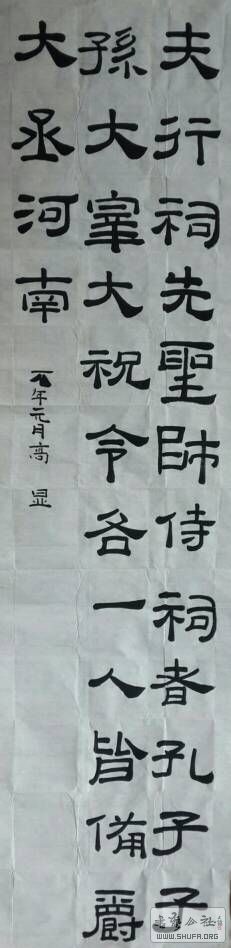 夫行祠先聖師侍祠者孔子子
孫大宰大祝令各一人皆備爵
大丞河南
年元月高显
WWW.SHUFA.ORG